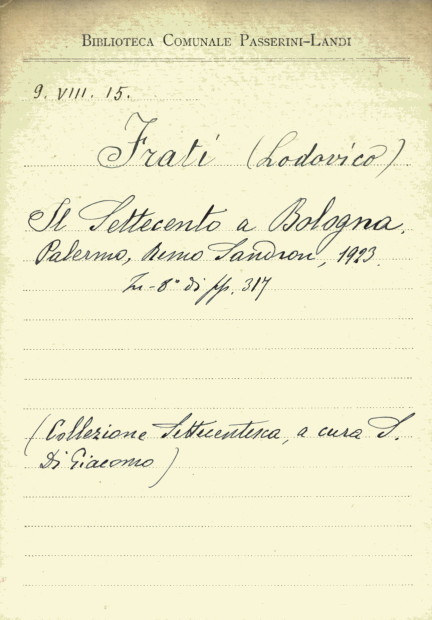 BIBLIOTECA COMUNALE PASSERINI-LANDI
9. VIII. 15.
Frati (Lodovico)
Il Settecento a Bologna.
Palermo, Remo Sandron, 1923.
In-8° di pp. 317
(Collezione Settecentesca, a cura S.
Di Giacomo)